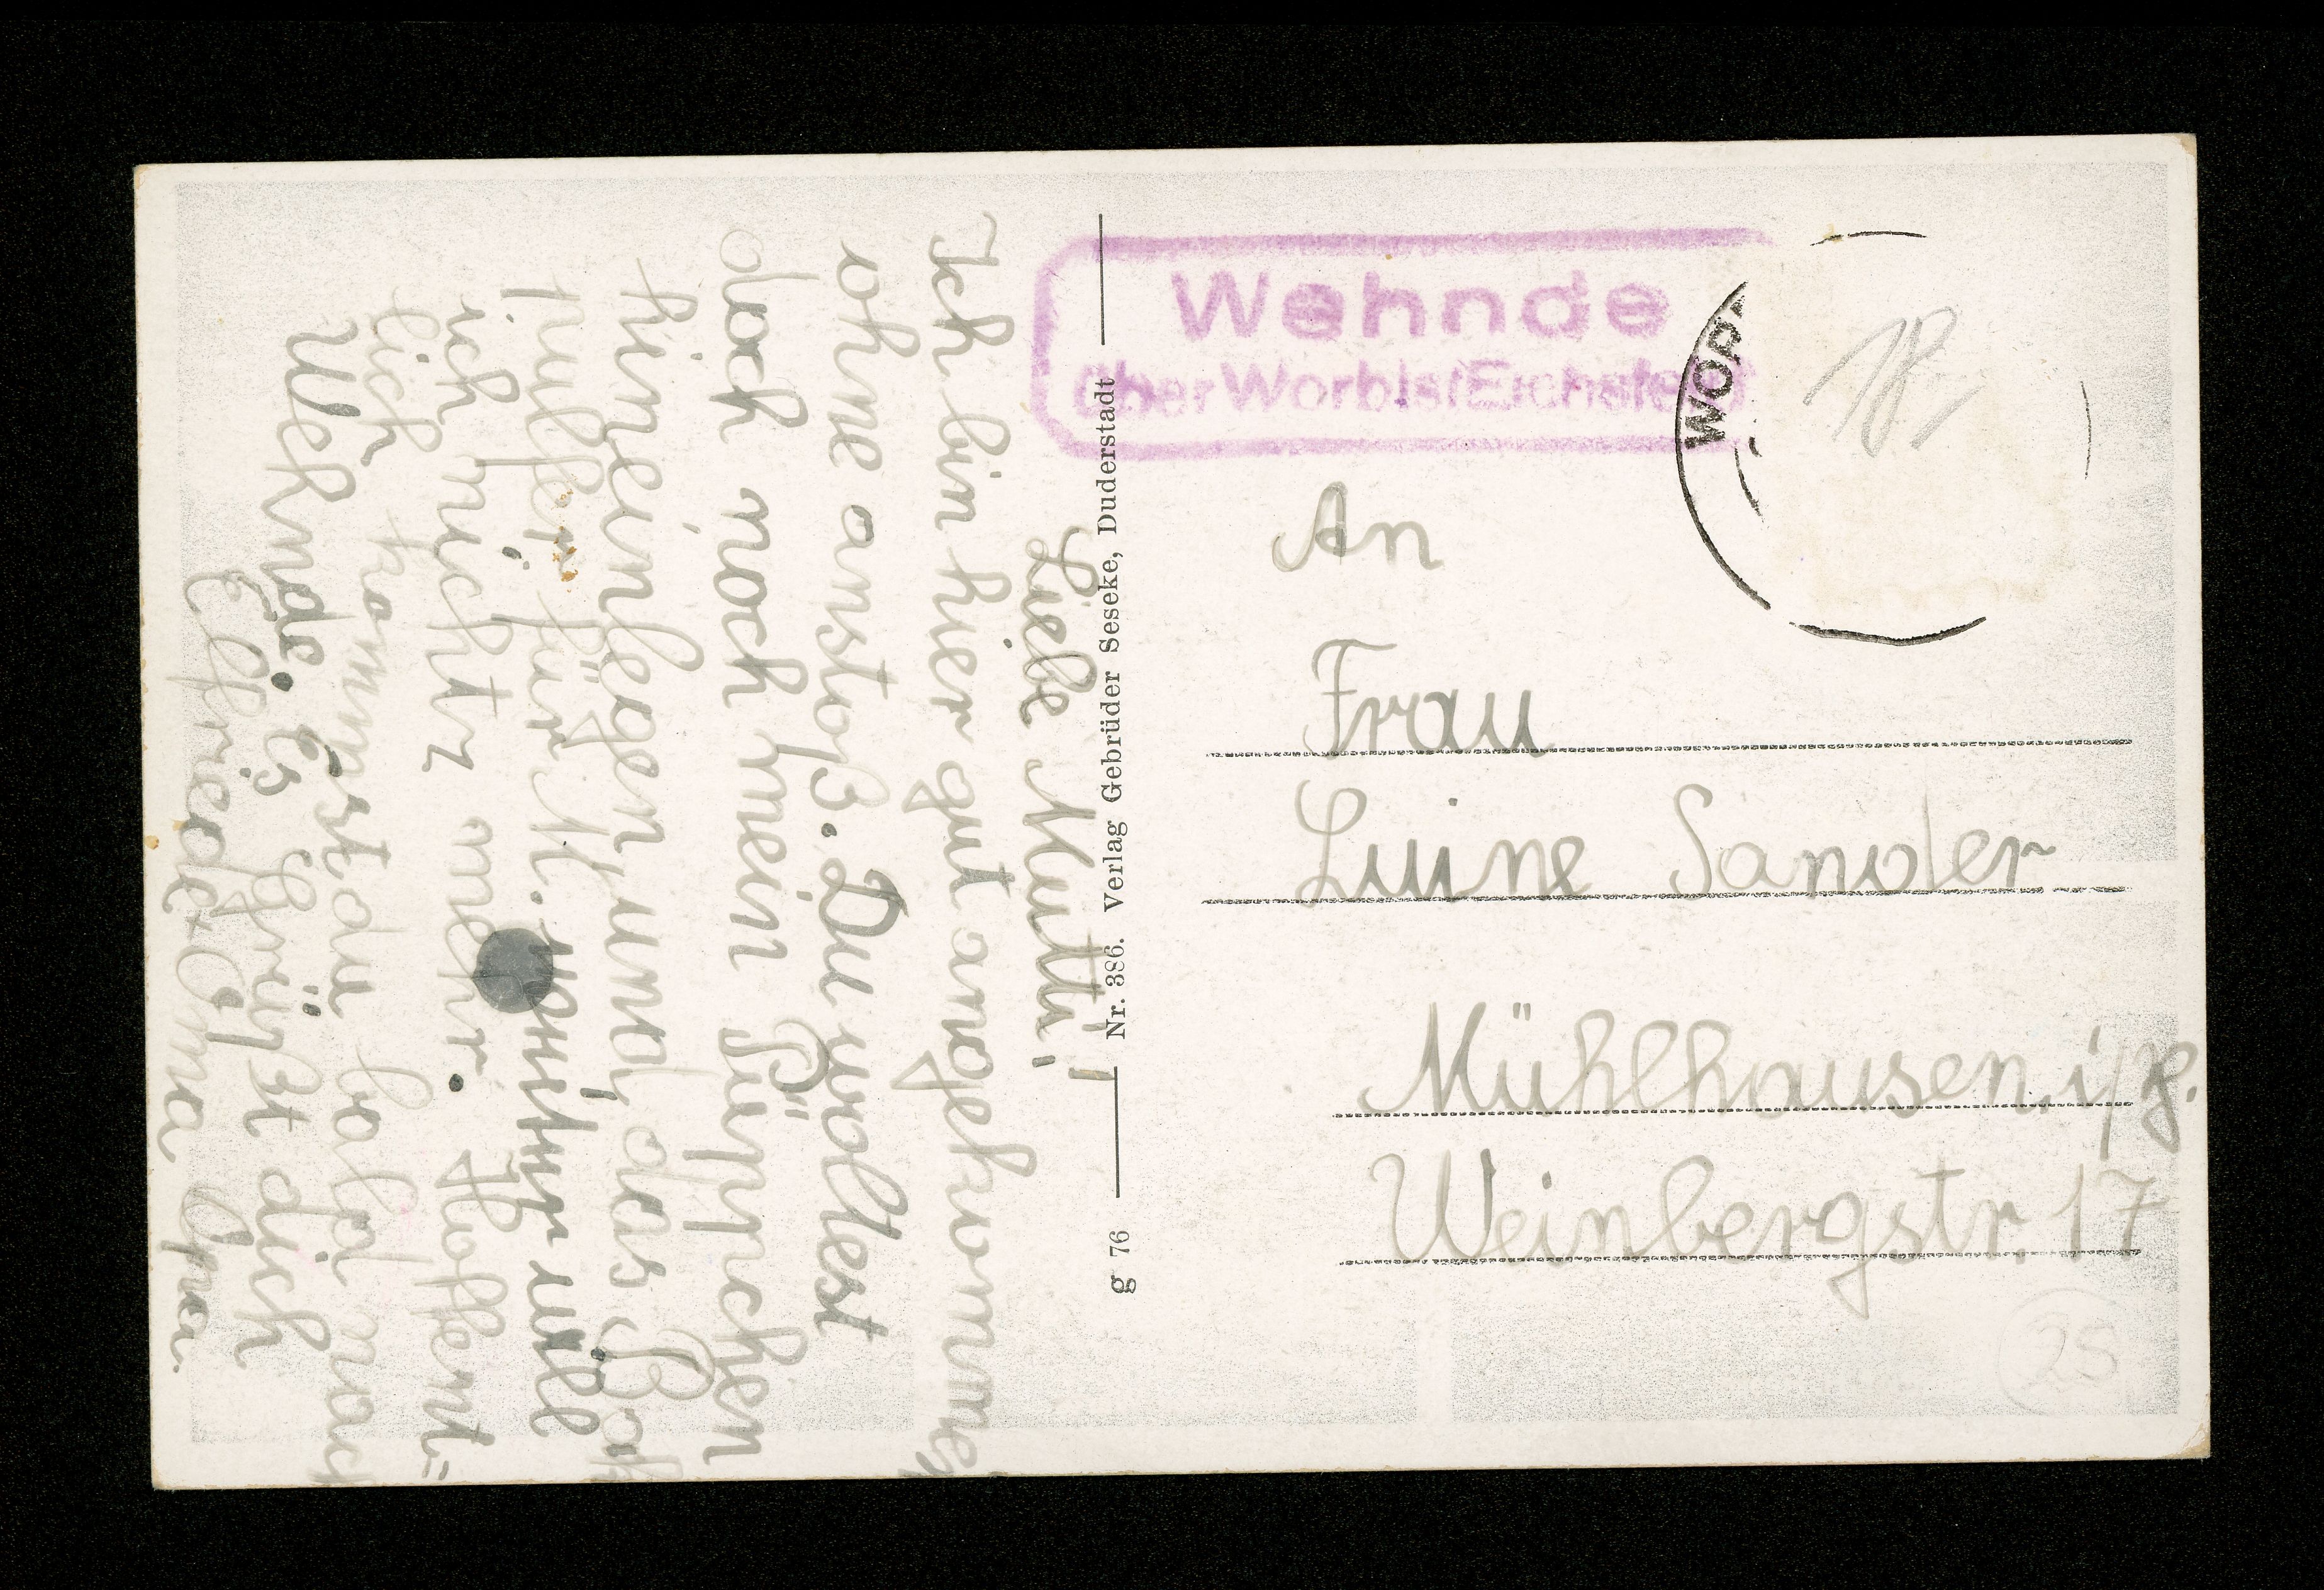 Liebe Mutti!
Ich bin hier gut angekommen
ohne anstoß. Du woltest
doch noch mein Püppchen
hineinlegen, und das
für M.
ich nicht mehr. Hoffent-
lich kommst du bald nach
Wehnde. Es grüßt dich
Elfriede + Oma Opa.
Nr. 386. Verlag Gebrüder Seseke, Duderstadt
g 76
Wehnde
über Worbis/Eichsfeld
WORB
18
An
Frau
Luine Sander
Mühlhausen i/
Weinbergstr 17
25